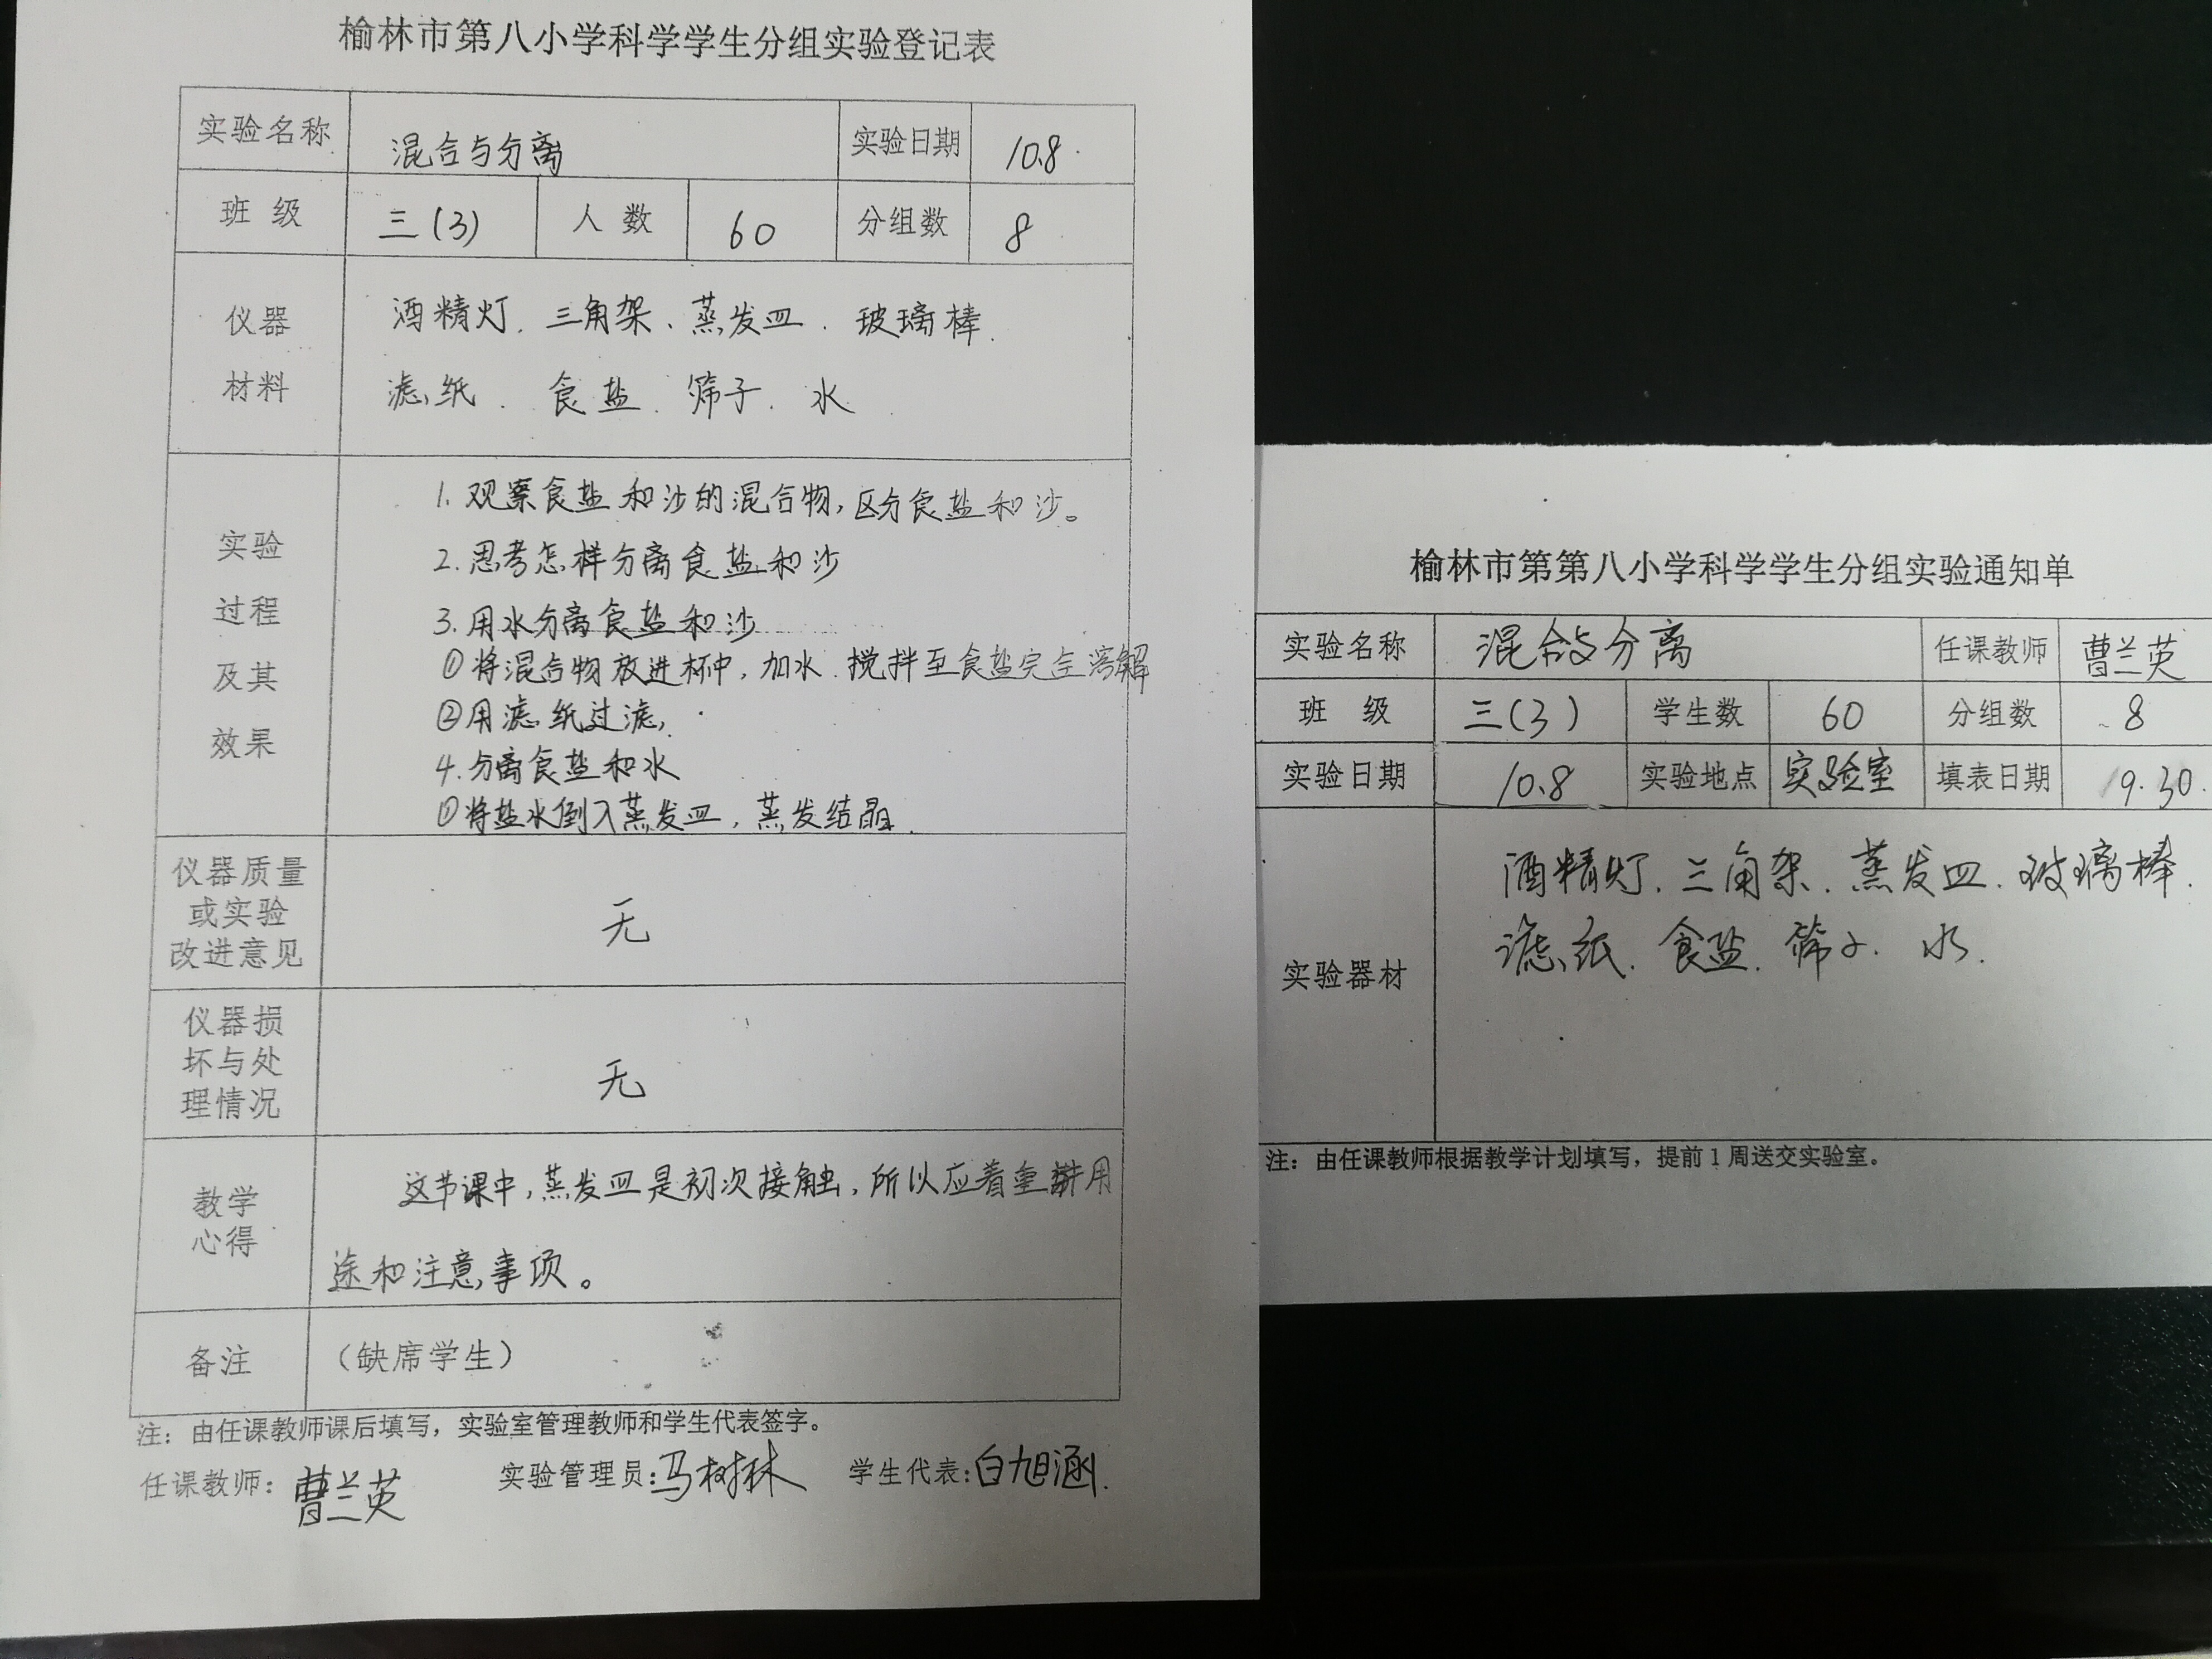 榆林市第八小学科学学生分组实验登记表
实验名称 混合与分离 实验日期 10.8.
班 级 三(3) 人 数 60 分组数 8
仪器
材料
酒精灯. 三角架、蒸发皿. 玻璃棒.
滤纸. 食盐. 筛子. 水
实验
过程
及其
效果
1. 观察食盐和沙的混合物,区分食盐和沙。
2. 思考怎样分离食盐和沙
3. 用水分离食盐和沙
①将混合物放进杯中,加水.搅拌至食盐完全溶解
②用滤纸过滤,
4. 分离食盐和水
①将盐水倒入蒸发皿,蒸发结晶.
仪器质量
或实验
改进意见
无
仪器损
坏与处
理情况
无
教学
心得
这节课中,蒸发皿是初次接触,所以应着重讲用
途和注意事项。
备注 (缺席学生)
注:由任课教师课后填写,实验室管理教师和学生代表签字。
任课教师:曹兰英 实验管理员:马树林 学生代表:白旭涵.
榆林市第第八小学科学学生分组实验通知单
实验名称 混合与分离 任课教师 曹兰英
班 级 三(3) 学生数 60 分组数 8
实验日期 10.8 实验地点 实验室 填表日期 9.30.
实验器材
酒精灯. 三角架. 蒸发皿. 玻璃棒.
滤纸. 食盐. 筛子. 水.
注:由任课教师根据教学计划填写,提前1周送交实验室。